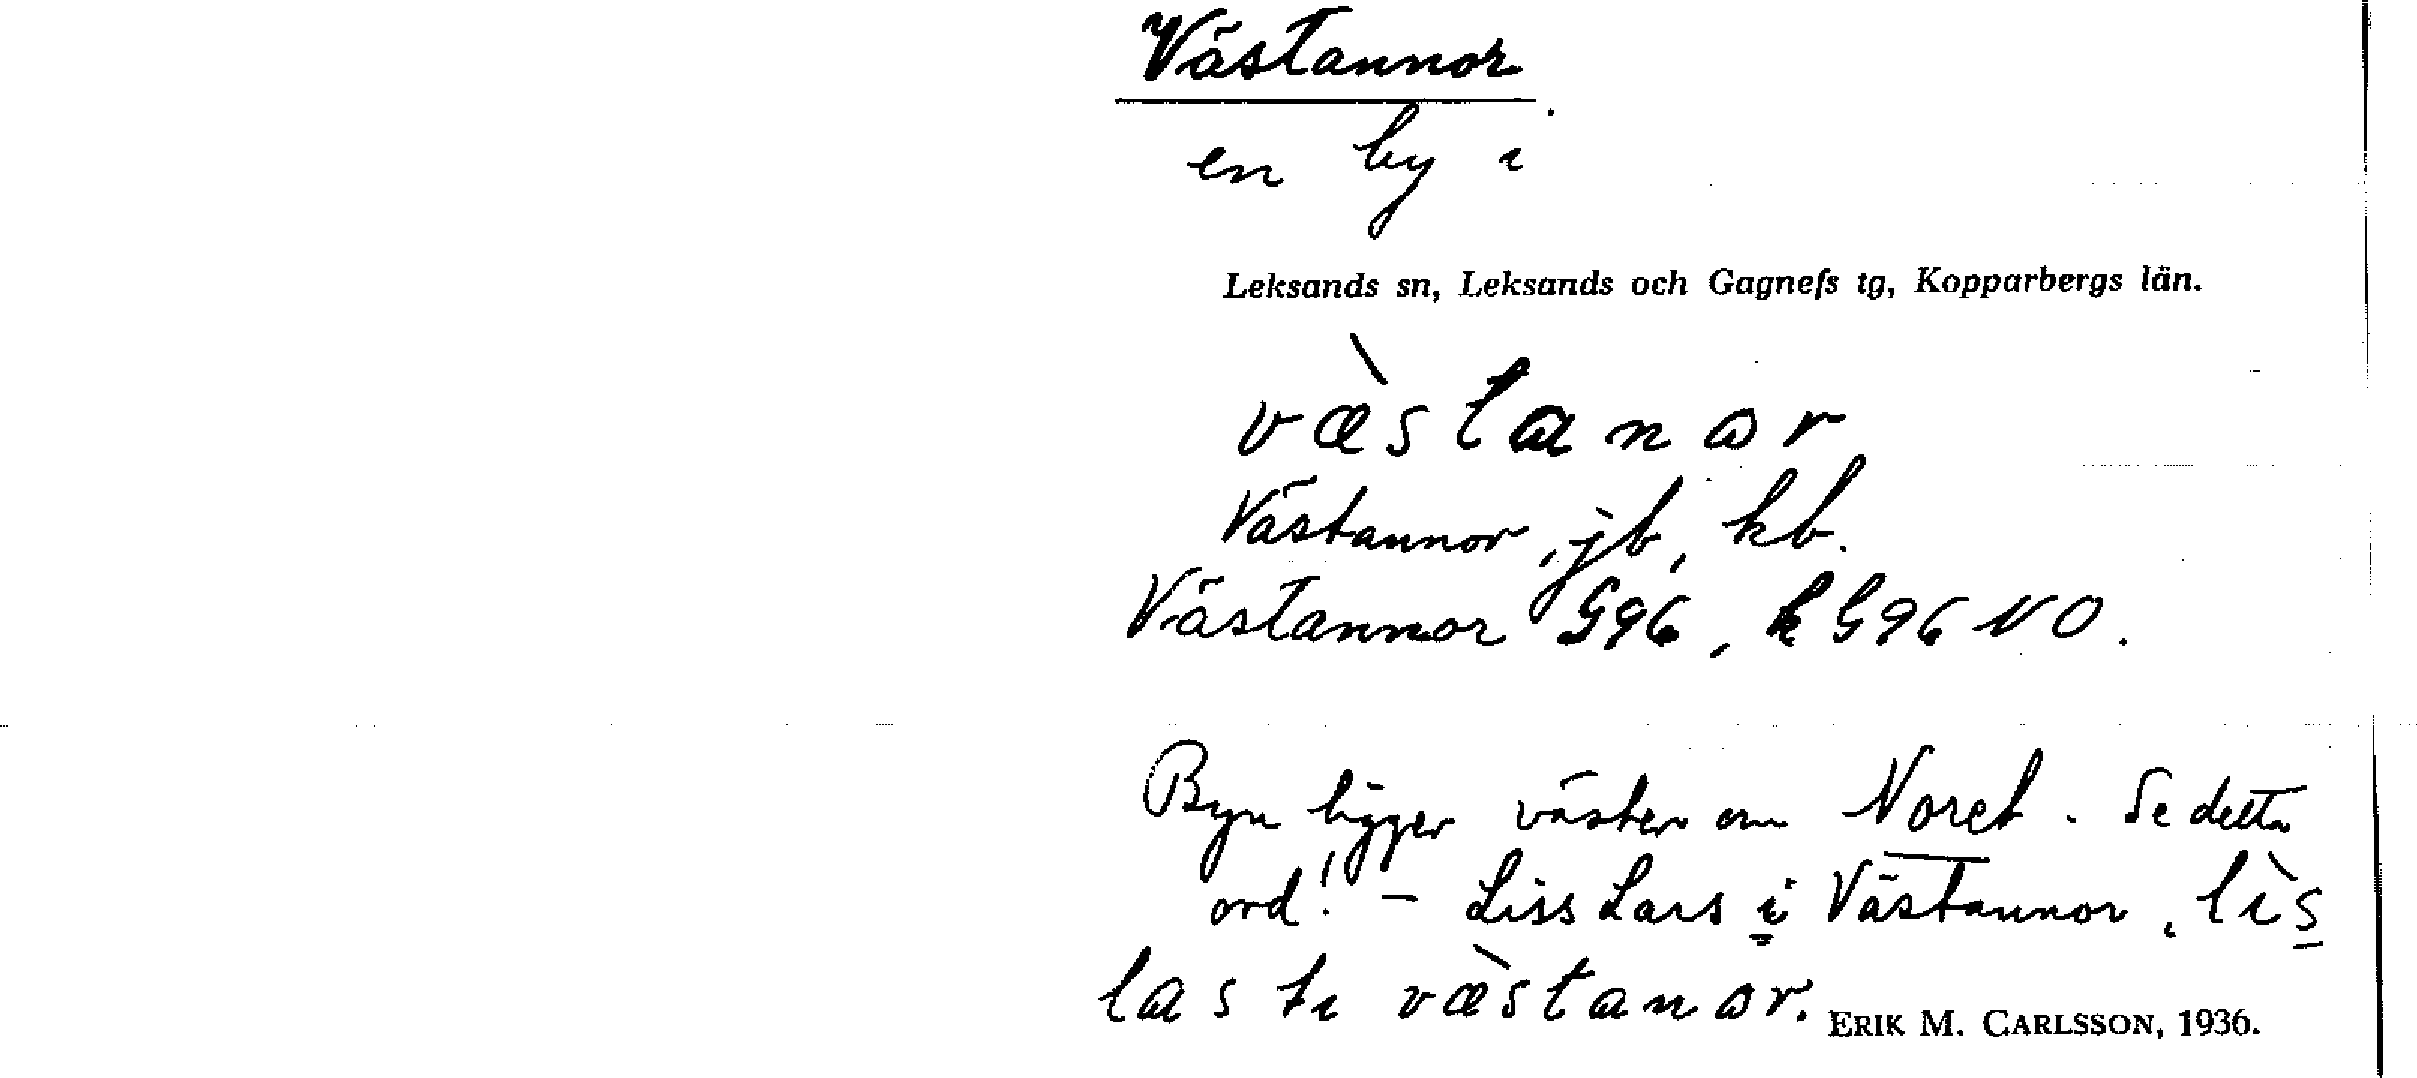 Västannor.
en by i
Leksands sn, Leksands och Gagnefs tg, Kopparbergs län.
væ̀stanor
Västannor, jb, kb.
Västannor G96, kG96 NO.
Byn ligger väster om Noret. Se detta
ord! – Liss Lars i Västannor, lìs
las ti væ̀stanor.
ERIK M. CARLSSON, 1936.